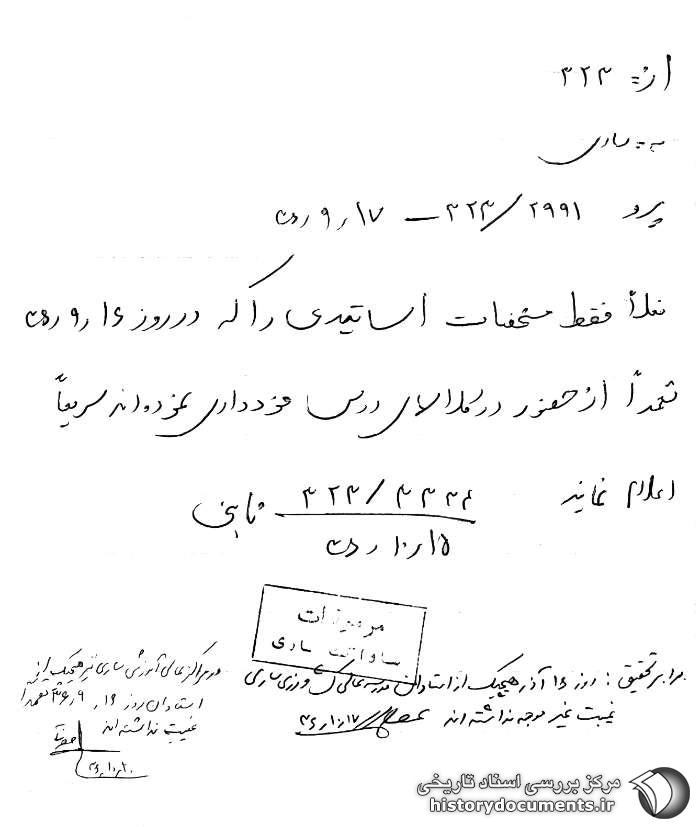 از: ۳۲۳
به: ساری
پیرو ۲۹۹۱/۳۲۳ – ۱۷/۹/۳۶
فعلاً فقط مشخصات اساتیدی را که در روز ۱۶/۹/۳۶
تعمداً از حضور در کلاسهای درس خودداری نموده‌اند سریعاً
اعلام نمایند ۳۳۳۶/۳۲۳ ثابتی
۱۵/۱۰/۳۶
مرموزات
ساواک ساری
برابر تحقیق: روز ۱۶ آذر هیچیک از استادان مدرسه عالی کشاورزی ساری
غیبت غیر موجه نداشته‌اند ۳۶/۱۰/۱۷
در مراکز عالی آموزشی ساری نیز هیچیک از
استادان روز ۱۶/۹/۳۶ تعمداً
غیبت نداشته‌اند
۳۶/۱۰/۲۰
مرکز بررسی اسناد تاریخی
historydocuments.ir